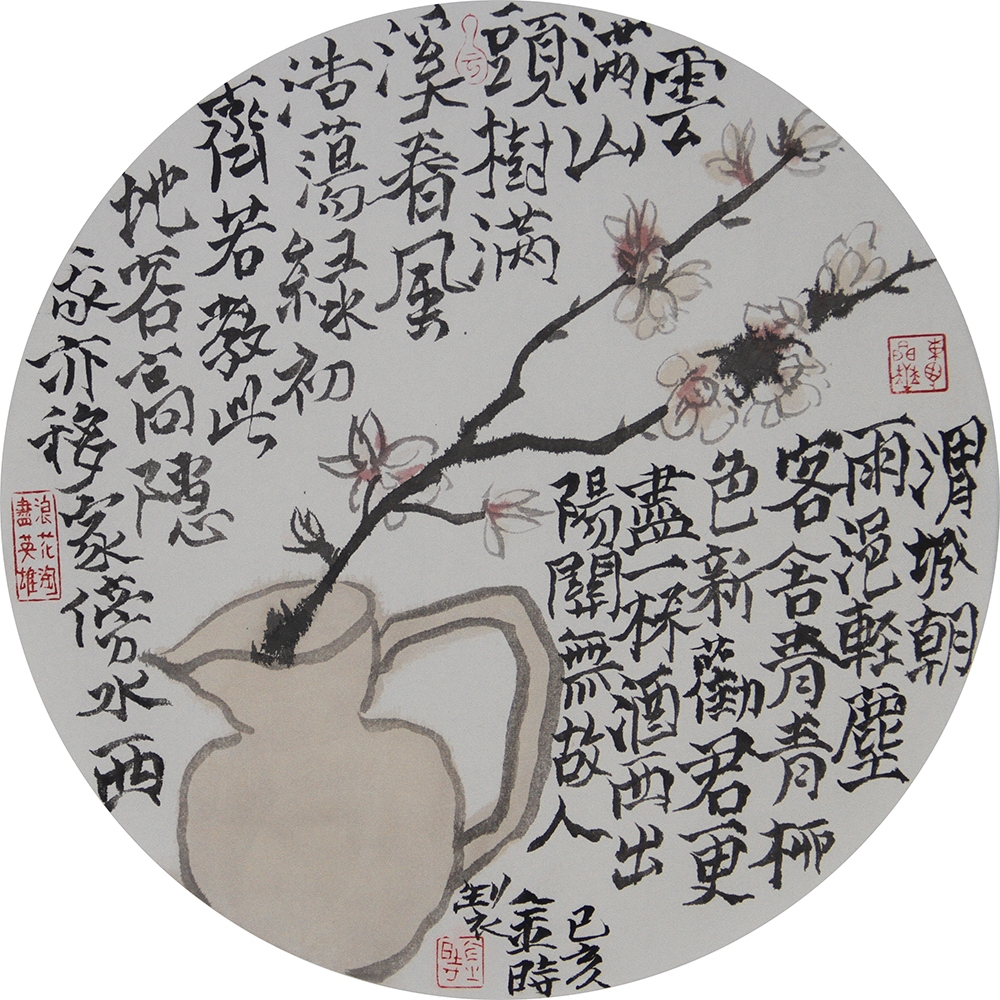 雲
滿山
頭樹滿
溪春風
浩蕩綠初
齊若教此
地容高隱
我亦移家傍水西
渭城朝
雨浥軽塵
客舍青青柳
色新勸君更
盡一杯酒西出
陽關無故人
己亥
金時
製
浪花淘
盡英雄